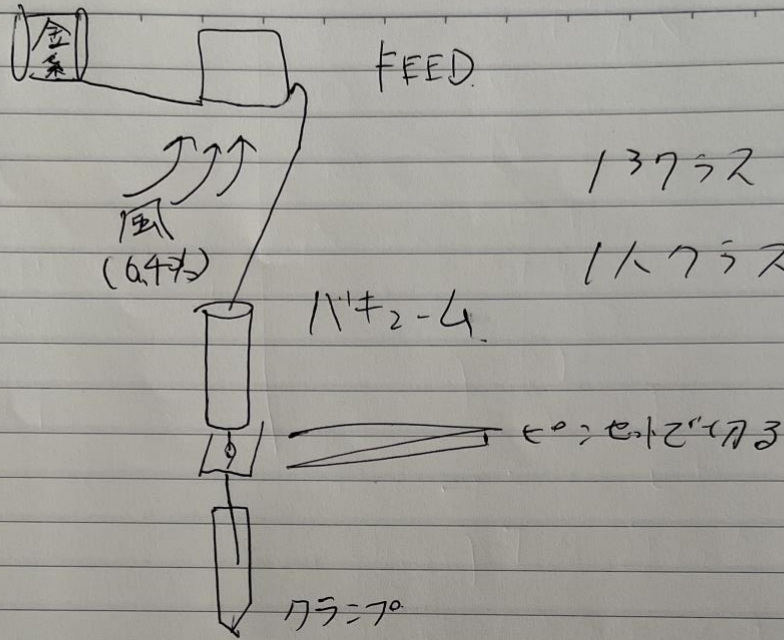 金糸
FEED
13クラス
風
(6.4%)
1人クラス
バキューム
ピンセットで切る
クランプ